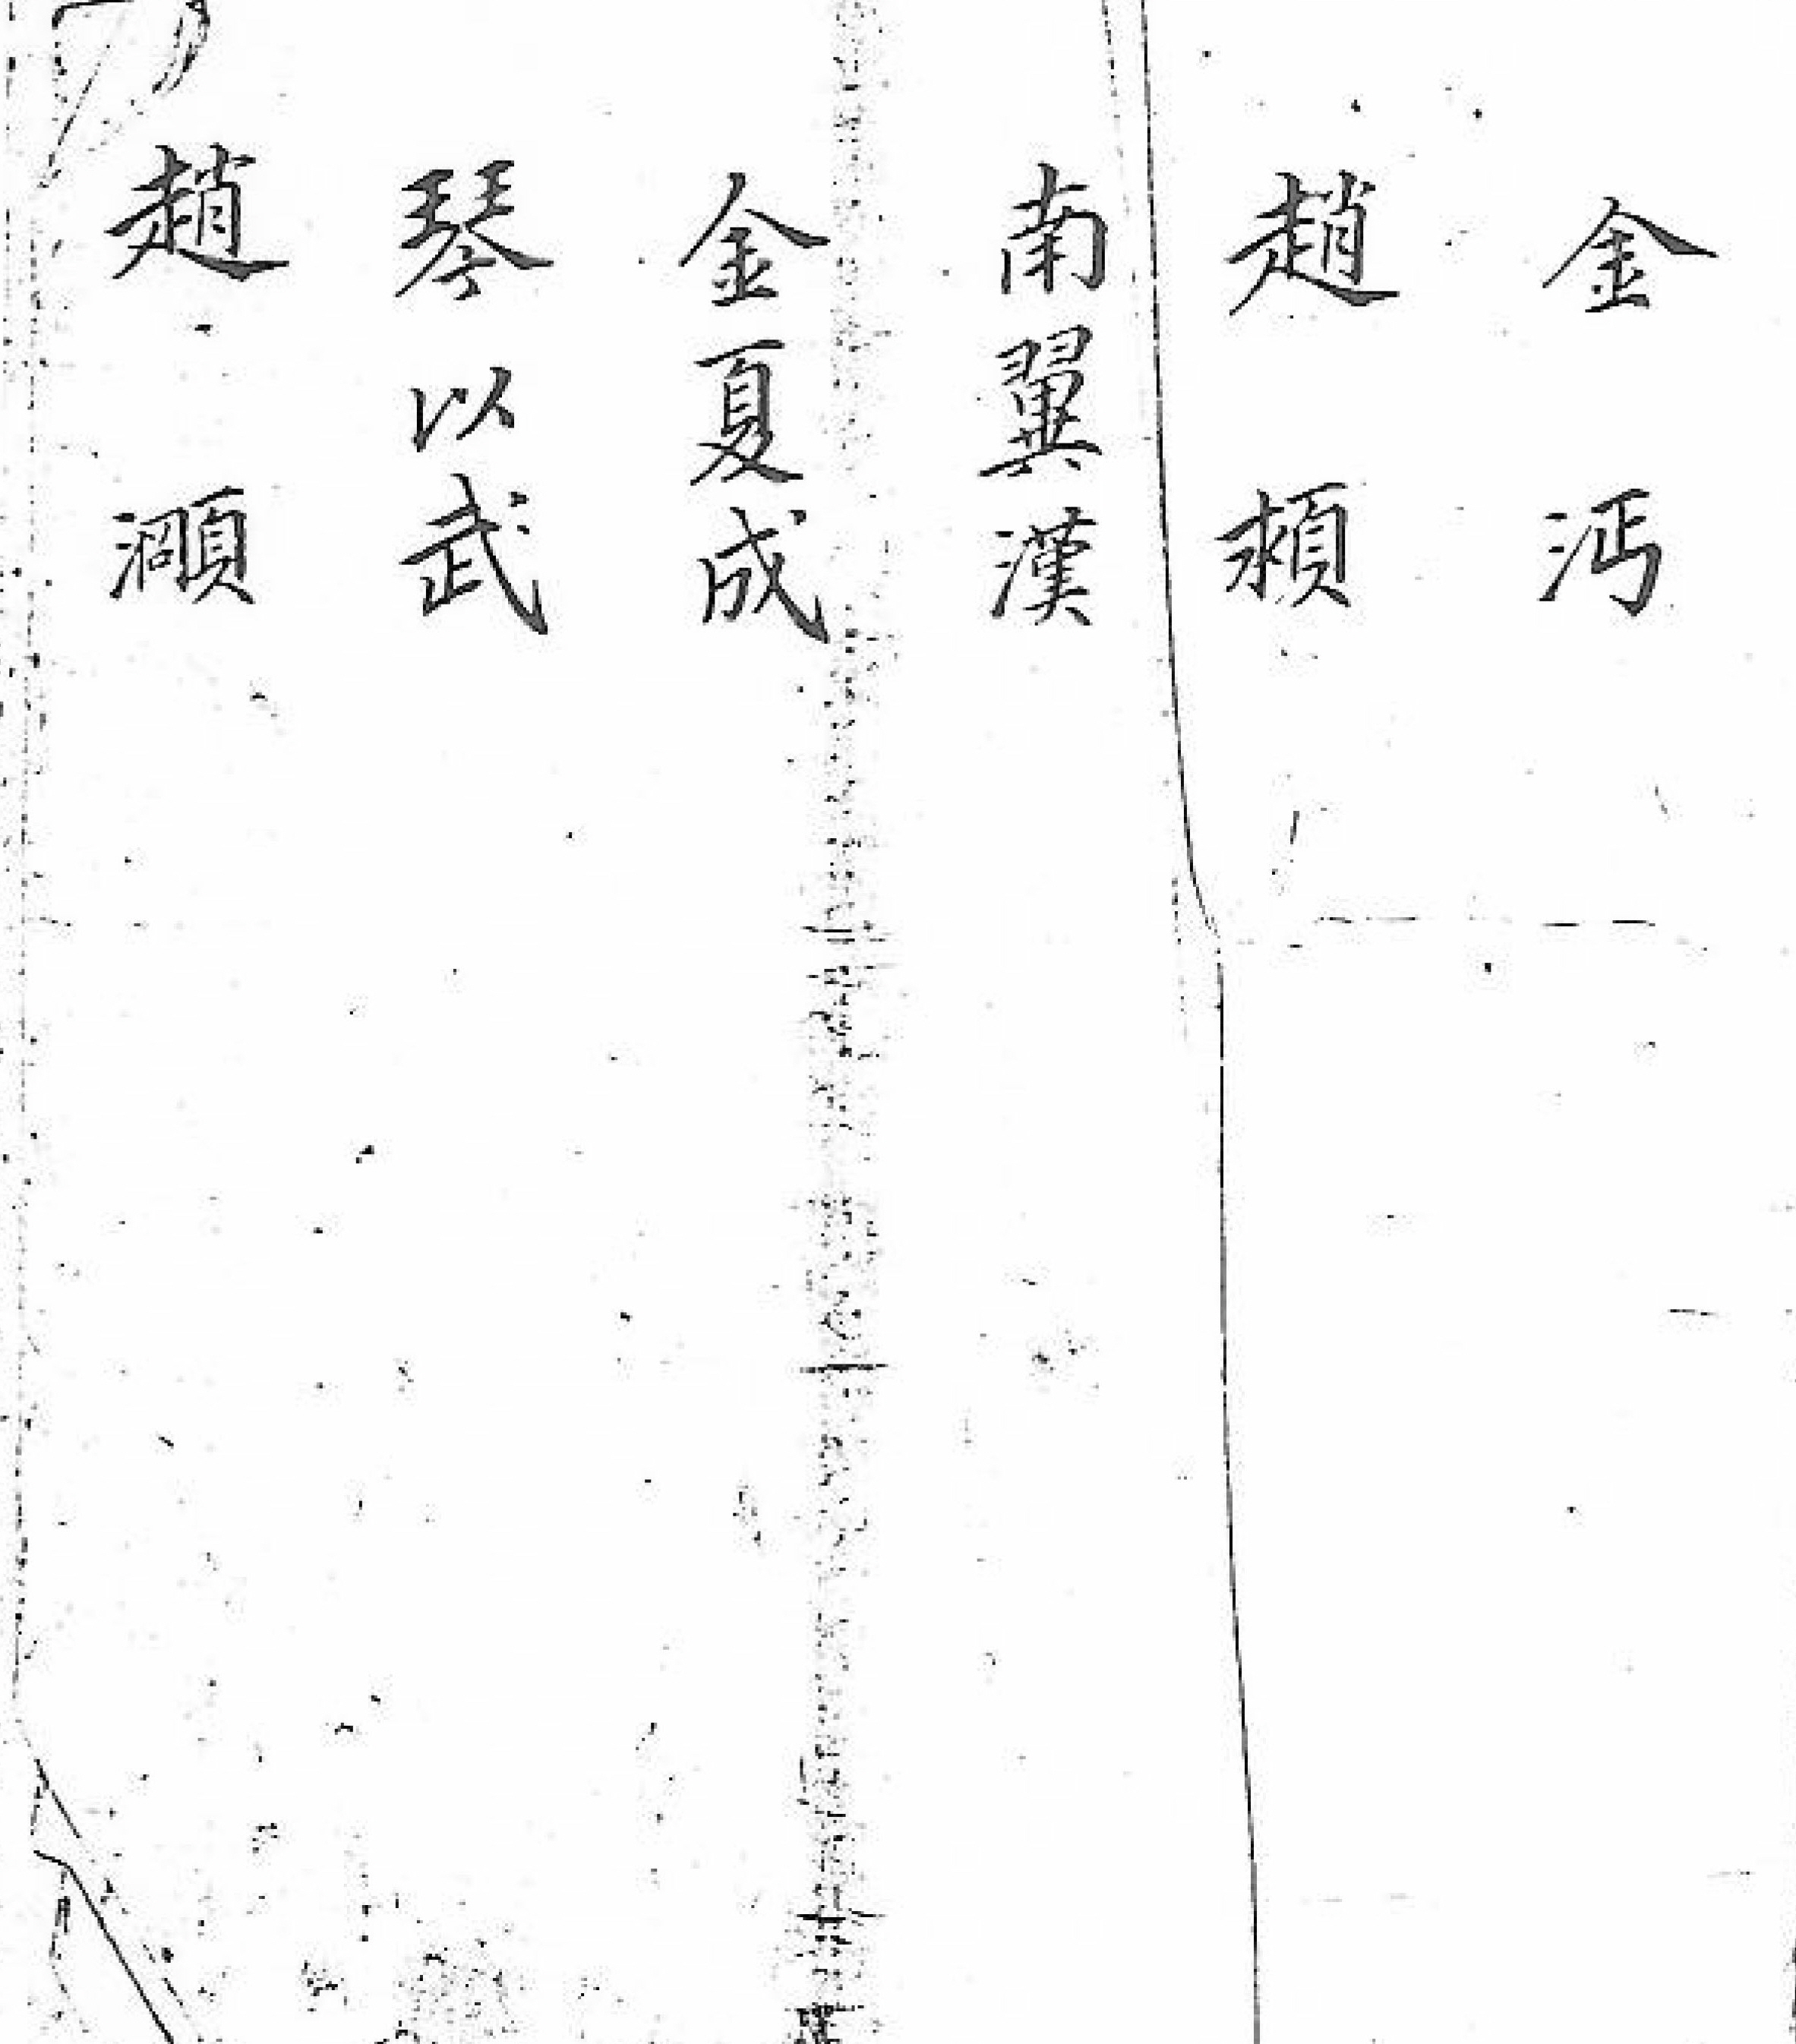 金沔
趙
南翼漢
金夏成
琴以武
趙